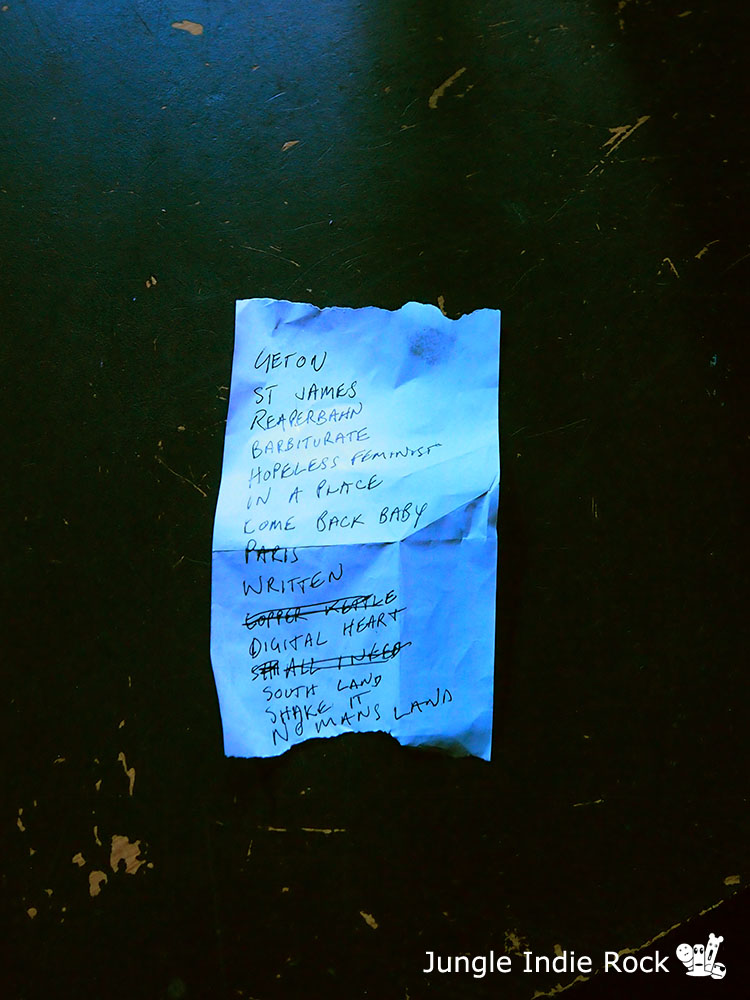 GET ON
ST JAMES
REAPERBAHN
BARBITURATE
HOPELESS FEMINIST
IN A PLACE
COME BACK BABY
PARIS
WRITTEN
COPPER KETTLE
DIGITAL HEART
ALL I NEED
SOUTH LAND
SHAKE IT
NO MANS LAND
Jungle Indie Rock